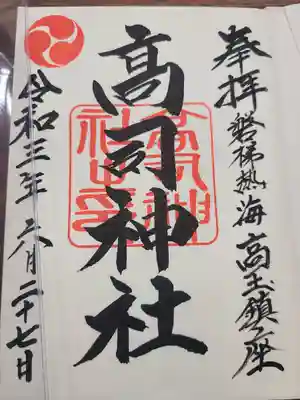 奉拝
磐梯熱海高玉鎮座
高司神社
高司神
社之印
令和三年六月二十七日